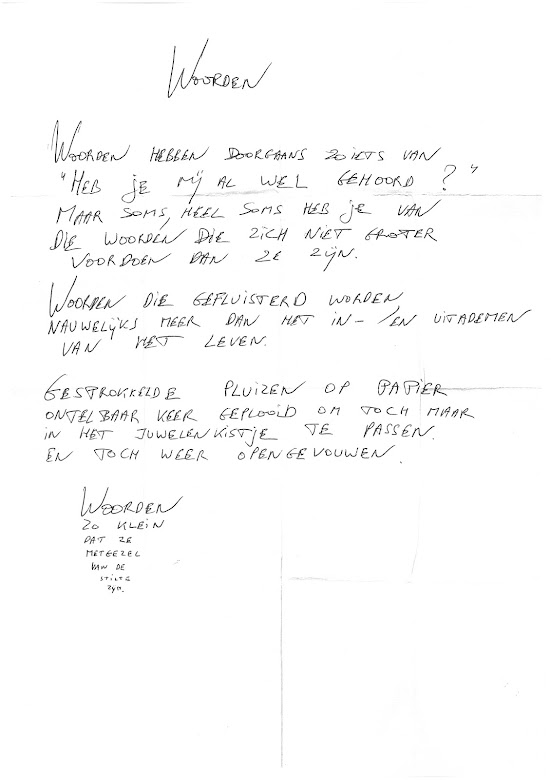 WOORDEN
WOORDEN HEBBEN DOORGAANS ZOIETS VAN
"HEB JE MIJ AL WEL GEHOORD?"
MAAR SOMS, HEEL SOMS HEB JE VAN
DIE WOORDEN DIE ZICH NIET GROTER
VOORDOEN DAN ZE ZIJN.
WOORDEN DIE GEFLUISTERD WORDEN,
NAUWELIJKS MEER DAN HET IN- /EN UITADEMEN
VAN HET LEVEN.
GESPROKKELDE PLUIZEN OP PAPIER
ONTELBAAR KEER GEPLOOID OM TOCH MAAR
IN HET JUWELENKISTJE TE PASSEN.
EN TOCH WEER OPENGEVOUWEN.
WOORDEN
ZO KLEIN
DAT ZE
METGEZEL
VAN DE
STILTE
ZIJN.